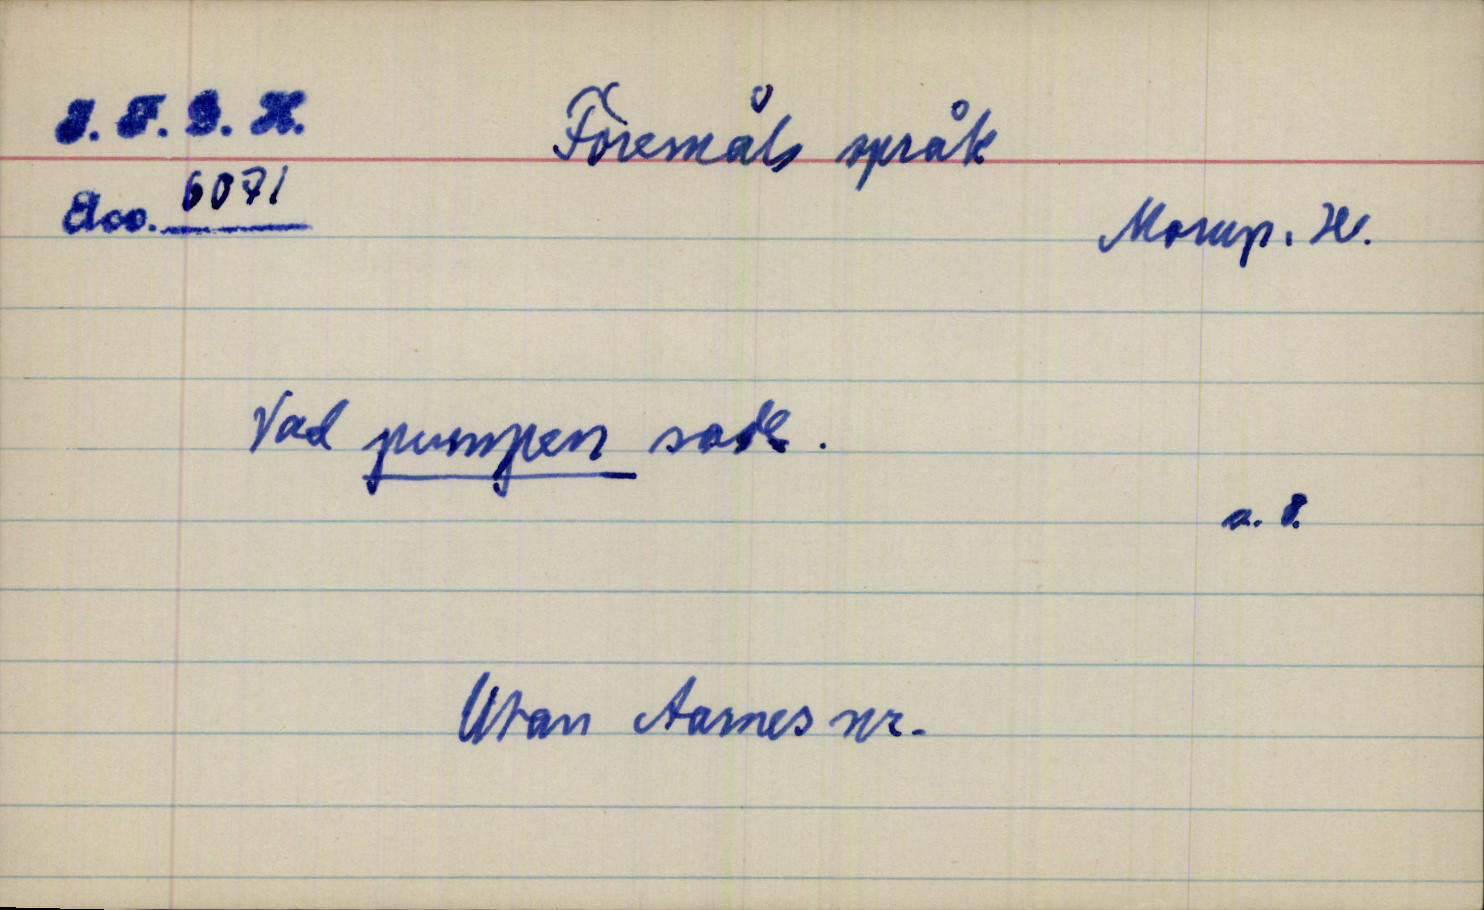 I. F. G. H.
Föremåls språk
Acc. 6071
Morup. H.
Vad pumpen sade.
s. 8.
Utan Aarnes nr.